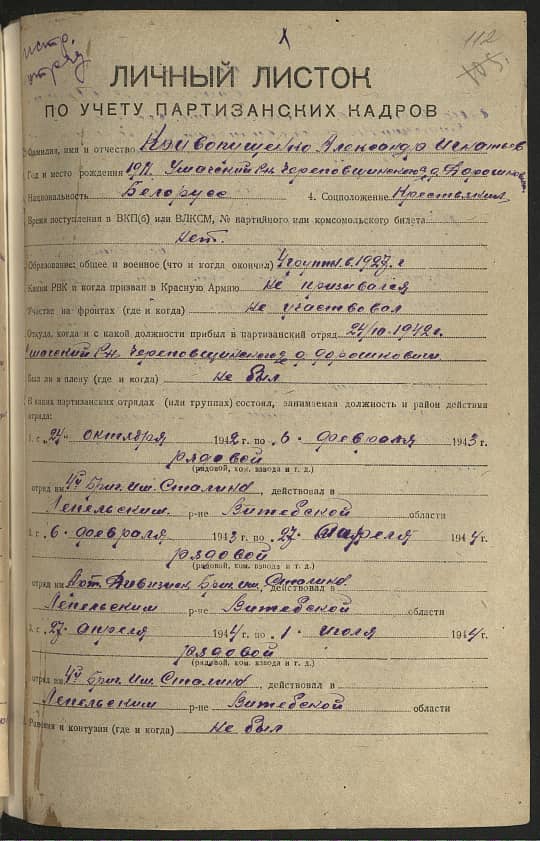 истр.
отряд
112
105.
ЛИЧНЫЙ ЛИСТОК
ПО УЧЕТУ ПАРТИЗАНСКИХ КАДРОВ
Фамилия, имя и отчество Александр Игнатьев
Год и место рождения 1911. Ушачский Рн. д. Дорошковичи
Национальность Белорус 4. Соцположение Крестьянин
Время поступления в ВКП(б) или ВЛКСМ, № партийного или комсомольского билета
нет.
Образование: общее и военное (что и когда окончил) 4 группы в 1927 г
Каким РВК и когда призван в Красную Армию не призывался
Участие на фронтах (где и когда) не участвовал
Откуда, когда и с какой должности прибыл в партизанский отряд 24/10. 1942 г.
Ушачский Рн. д. Дорошковичи
Был ли в плену (где и когда) не был
В каких партизанских отрядах (или группах) состоял, занимаемая должность и район действия
отряда:
1. с "24" октября 1942 г. по "6" февраля 1943 г.
рядовой
(рядовой, ком. взвода и т. д.)
отряд им. 4й Бриг. им. Сталина, действовал в
Лепельским р-не Витебской области
2. с "6" февраля 1943 г. по "27" апреля 1944 г.
рядовой
(рядовой, ком. взвода и т. д.)
отряд им. Бриг. им. Сталина, действовал в
Лепельским р-не Витебской области
3. с "27" апреля 1944 г. по "1" июля 1944 г.
рядовой
(рядовой, ком. взвода и т. д.)
отряд им. 4й Бриг. им. Сталина, действовал в
Лепельским р-не Витебской области
Ранения и контузии (где и когда) не был